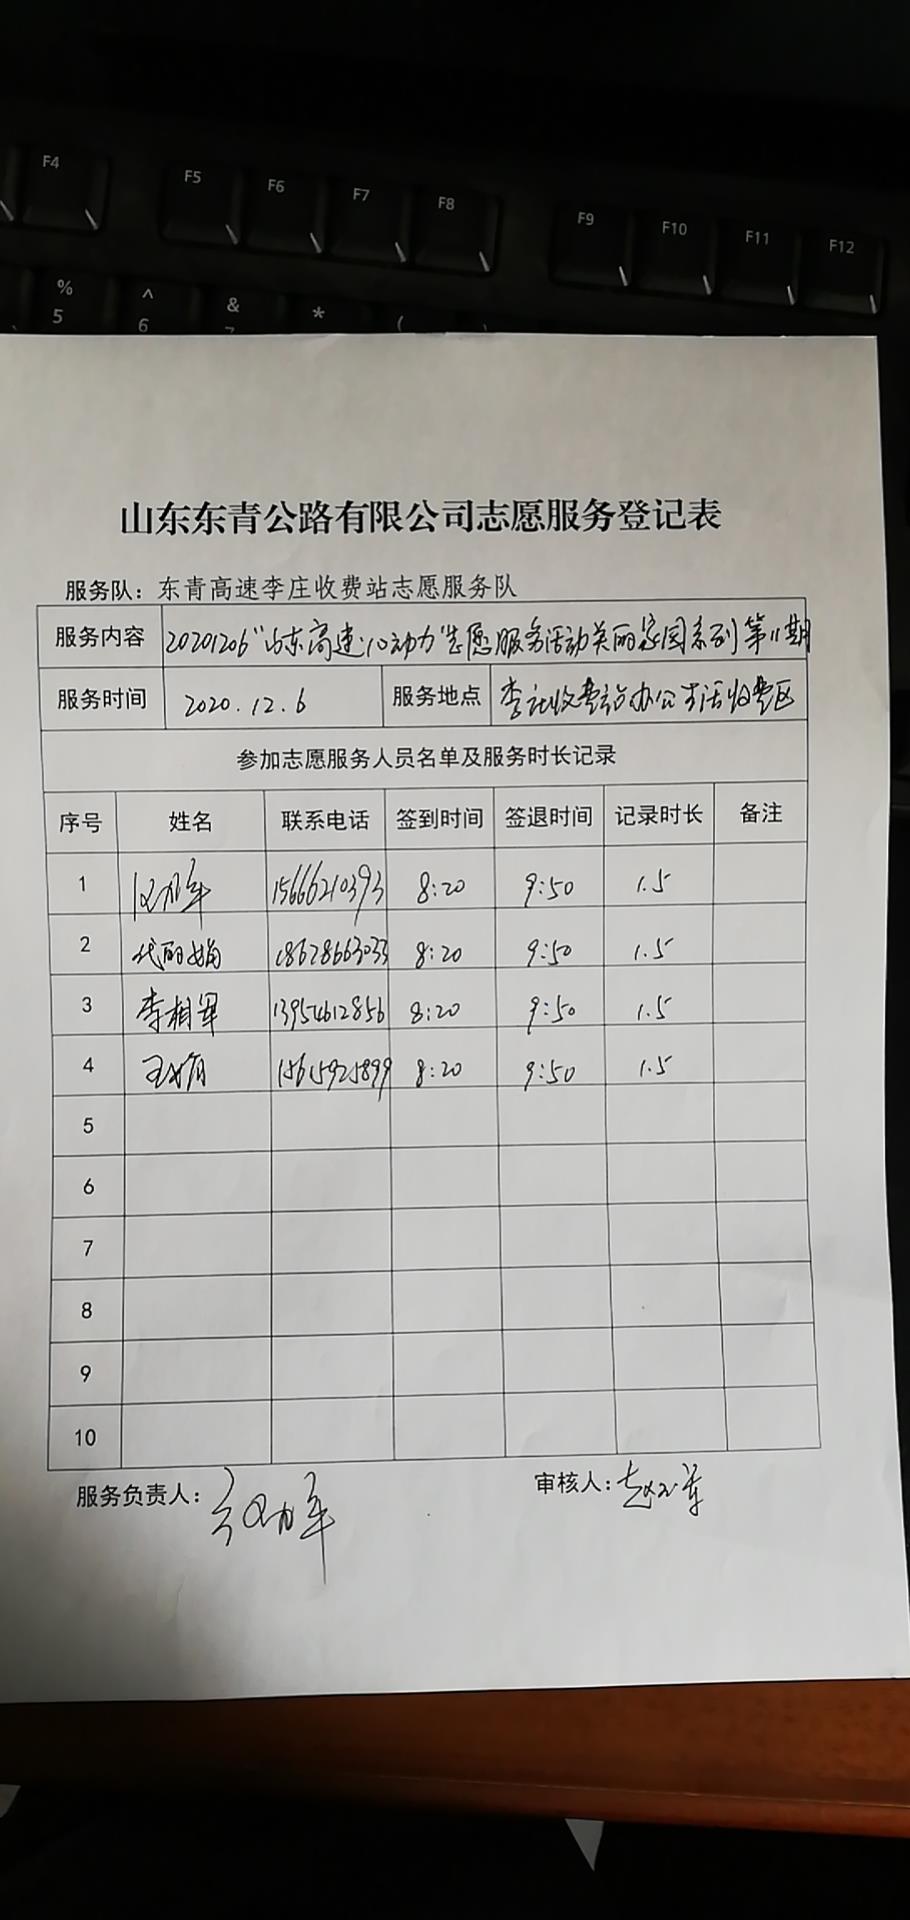 F4 F5 F6 F7 F8 F9 F10 F11 F12
% ^ & * (
5 6 7
山东东青公路有限公司志愿服务登记表
服务队：东青高速李庄收费站志愿服务队
服务内容 20201206"山东高速·心动力"志愿服务活动美丽家园系列第11期
服务时间 2020.12.6 服务地点 李庄收费站办公生活收费区
参加志愿服务人员名单及服务时长记录
序号 姓名 联系电话 签到时间 签退时间 记录时长 备注
1 15666210393 8:20 9:50 1.5
2 代丽娟 18678663033 8:20 9:50 1.5
3 李相军 13954612856 8:20 9:50 1.5
4 15615925899 8:20 9:50 1.5
5
6
7
8
9
10
服务负责人： 审核人：